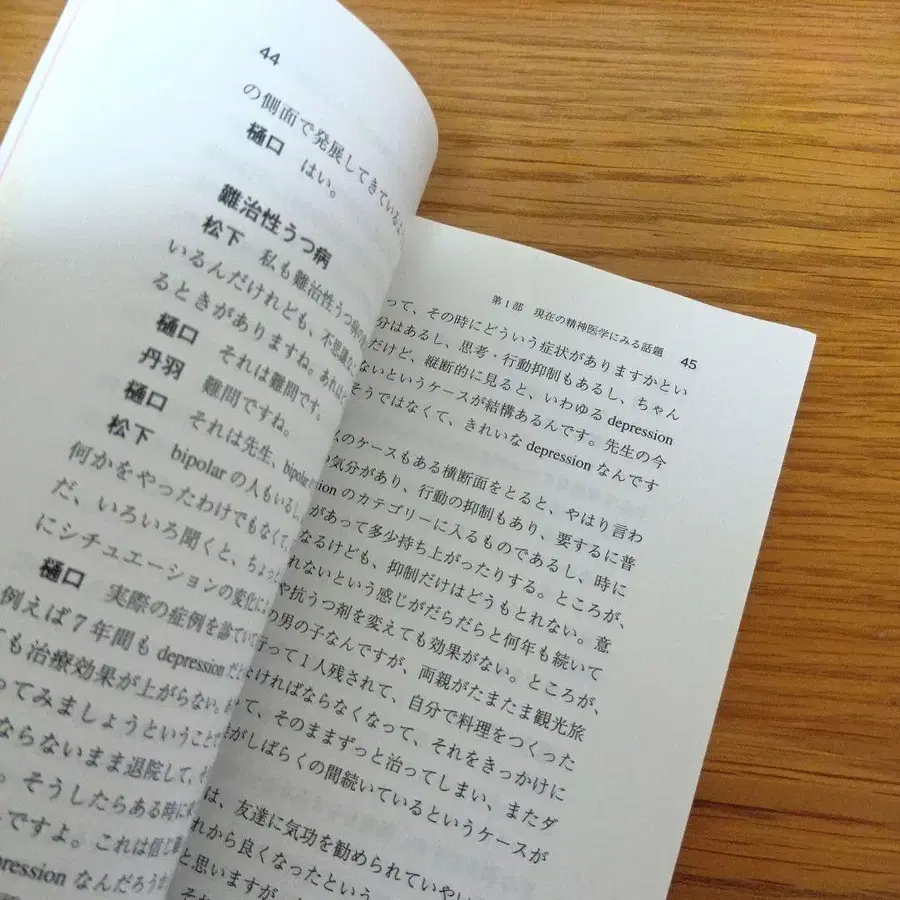 44
の側面で発展してきている
樋口 はい。
難治性うつ病
松下 私も難治性うつ病の
いるんだけれども、不思議な
るときがありますね。あれは
樋口 それは難問です。
丹羽 難問ですね。
樋口 それは先生、bipolar
松下 bipolarの人もいるし、
何かをやったわけでもなくて
だ、いろいろ聞くと、ちょっ
にシチュエーションの変化に
樋口 実際の症例を診ていて
例えば7年間もdepressionだ
ても治療効果が上がらない。
ってみましょうということで
ならないまま退院して、
。そうしたらある時に
ですよ。これは信じ
pressionなんだろう
第1部 現在の精神医学にみる話題 45
って、その時にどういう症状がありますかとい
分はあるし、思考・行動抑制もあるし、ちゃん
だけど、縦断的に見ると、いわゆるdepression
ないというケースが結構あるんです。先生の今
そうではなくて、きれいなdepressionなんです
のケースもある横断面をとると、やはり言わ
気分があり、行動の抑制もあり、要するに普
sionのカテゴリーに入るものであるし、時に
があって多少持ち上がったりする。ところが、
なるけども、抑制だけはどうもとれない。意
れないという感じがだらだらと何年も続いて
や抗うつ剤を変えても効果がない。ところが、
の男の子なんですが、両親がたまたま観光旅
行って1人残されて、自分で料理をつくった
なければならなくなって、それをきっかけに
て、そのままずっと治ってしまい、またダ
がしばらくの間続いているというケースが
は、友達に気功を勧められていやい
れから良くなったという
と思いますが、